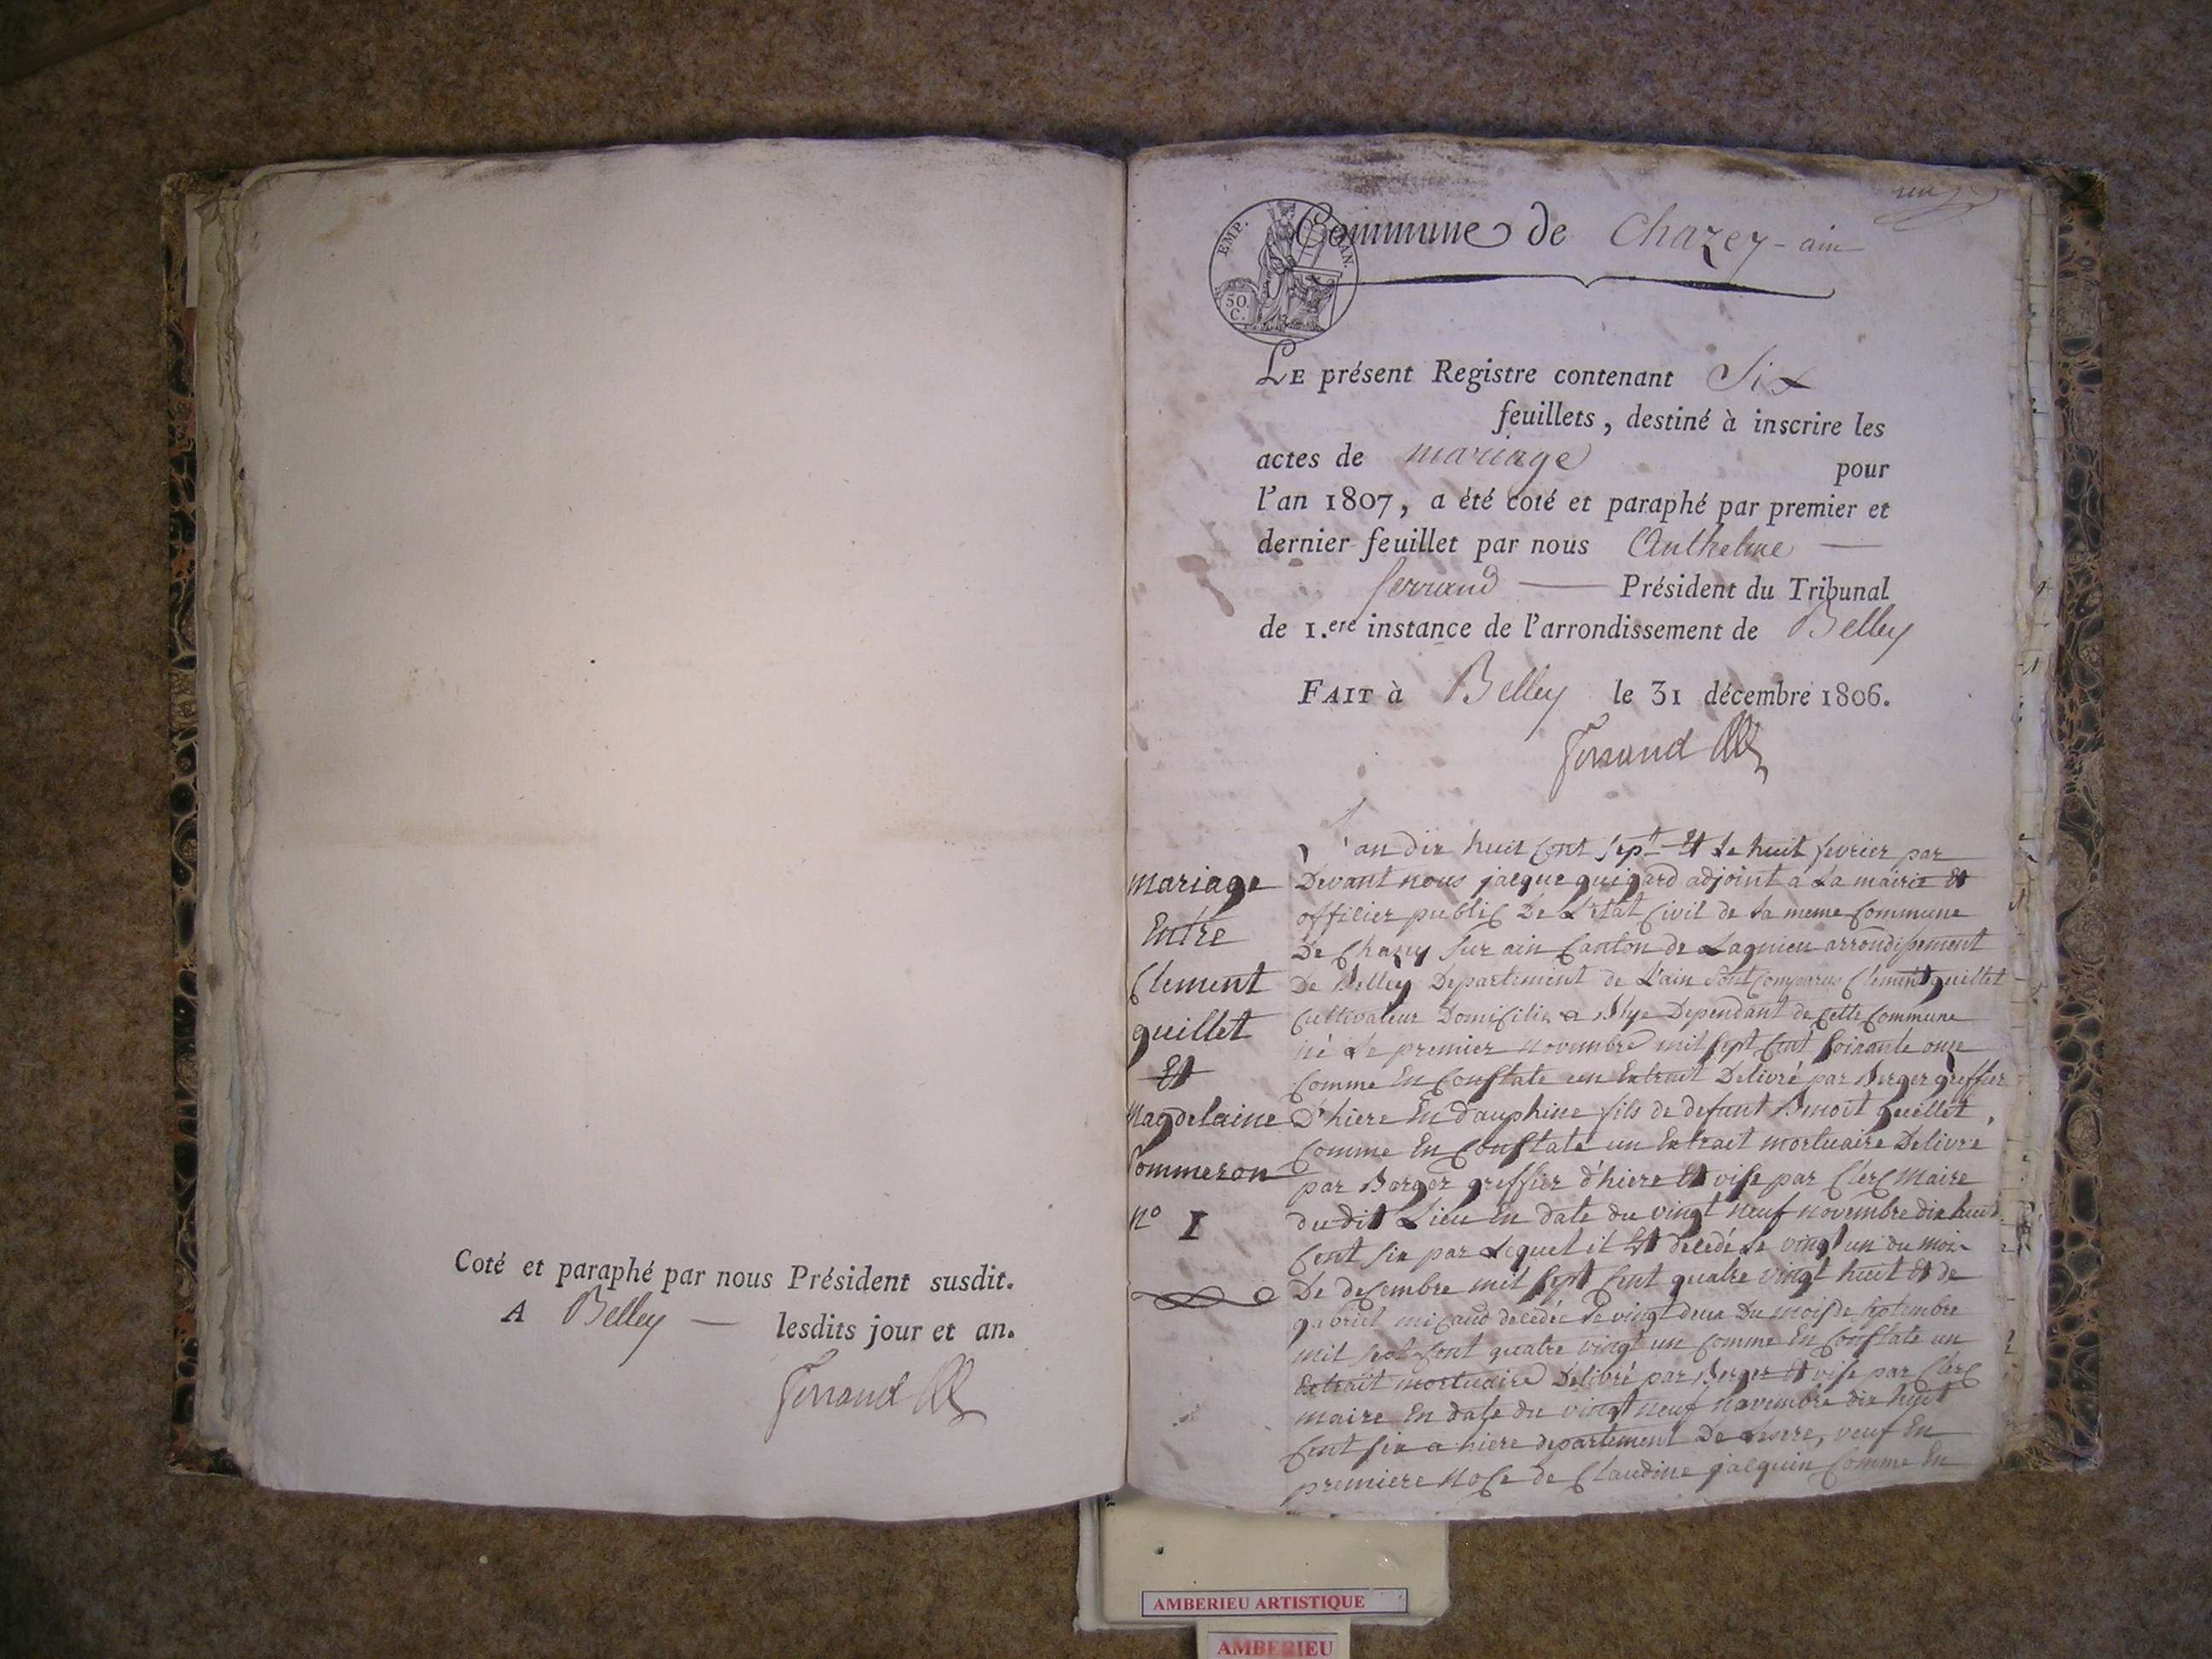 Coté et paraphé par nous Président susdit.
A Belley — lesdits jour et an.
Ferrand
un
EMP. 50 C.
Commune de Chazey-ain
LE présent Registre contenant Six
feuillets, destiné à inscrire les
actes de mariage pour
l'an 1807, a été coté et paraphé par premier et
dernier feuillet par nous Anthelme —
ferrand — Président du Tribunal
de 1.ere instance de l'arrondissement de Belley
FAIT à Belley le 31 décembre 1806.
Ferrand
mariage
Entre
Clement
guillet
Et
Magdelaine
Commeron
n° 1
L'an dix huit Cent Sept Et le huit fevrier par
Devant nous jacque guigard adjoint a La mairie Et
officier public De L'etat Civil de la meme Commune
De Chazey sur ain Canton de Lagnieu arrondissement
De Belley Departement de L'ain Sont Comparus Clement guillet
Cultivateur Domicilié a Blye Dependant de Cette Commune
né Le premier novembre mil sept Cent soixante onze
Comme En Constate un Extrait Delivré par Berger greffier
D'hiere En dauphine fils de defunt Benoit guillet
Comme En Constate un Extrait mortuaire Delivré
par Berger greffier d'hiere Et vise par Clerc Maire
du dit Lieu En date du vingt neuf novembre dix huit
Cent six par Lequel il Et decedé Le vingt un du moi
De decembre mil sept Cent quatre vingt huit Et de
gabriel micaud decedée Le vingt deux Du mois de septembre
mil sept Cent quatre vingt un Comme En Constate un
Extrait mortuaire Delibré par Berger Et vise par Clerc
maire En date du vingt neuf novembre dix huit
Cent six a hiere departement De Lisere, veuf En
premiere noce de Claudine jacquin Comme En
AMBERIEU ARTISTIQUE
AMBERIEU